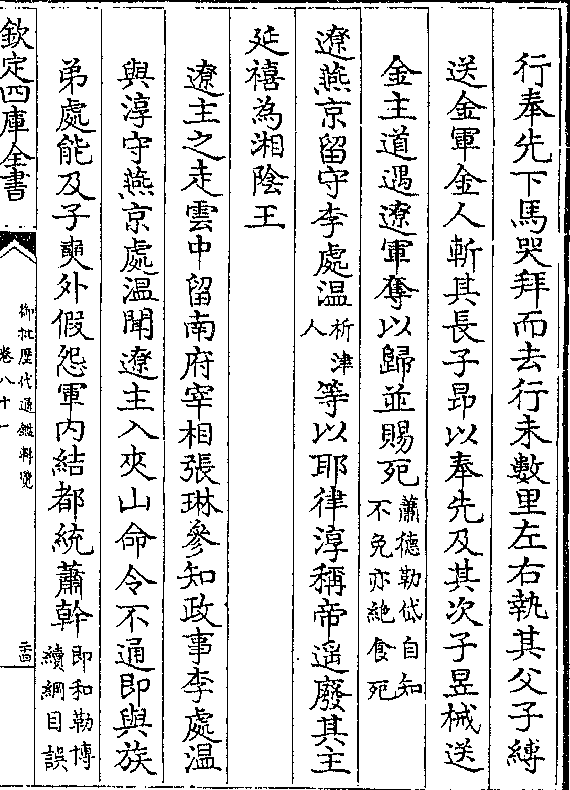 行奉先下馬哭拜而去行未數里左右執其父子縛
送金軍金人斬其長子昂以奉先及其次子昱械送
金主道遇遼軍奪以歸並賜死蕭德勒岱自知不免亦絶食死
遼燕京留守李處温析津人等以耶律淳稱帝遥廢其主
延禧為湘陰王
遼主之走雲中留南府宰相張琳參知政事李處温
與淳守燕京處温聞遼主入夾山命令不通即與族
弟處能及子奭外假怨軍内結都統蕭幹即和勒博續綱目誤
欽定四庫全書
御批歷代通鑑輯覽
卷八十一